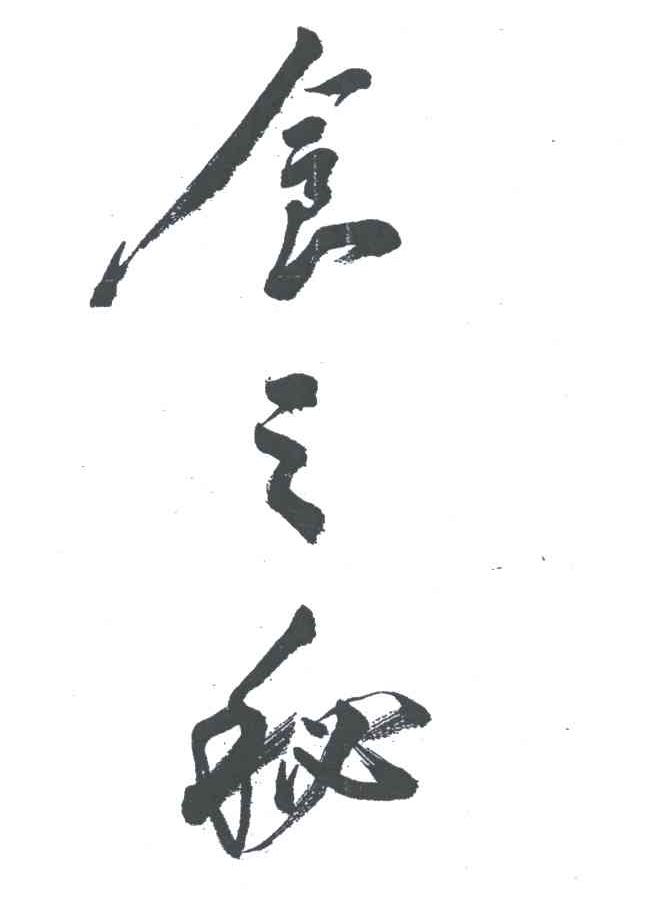 食之秘